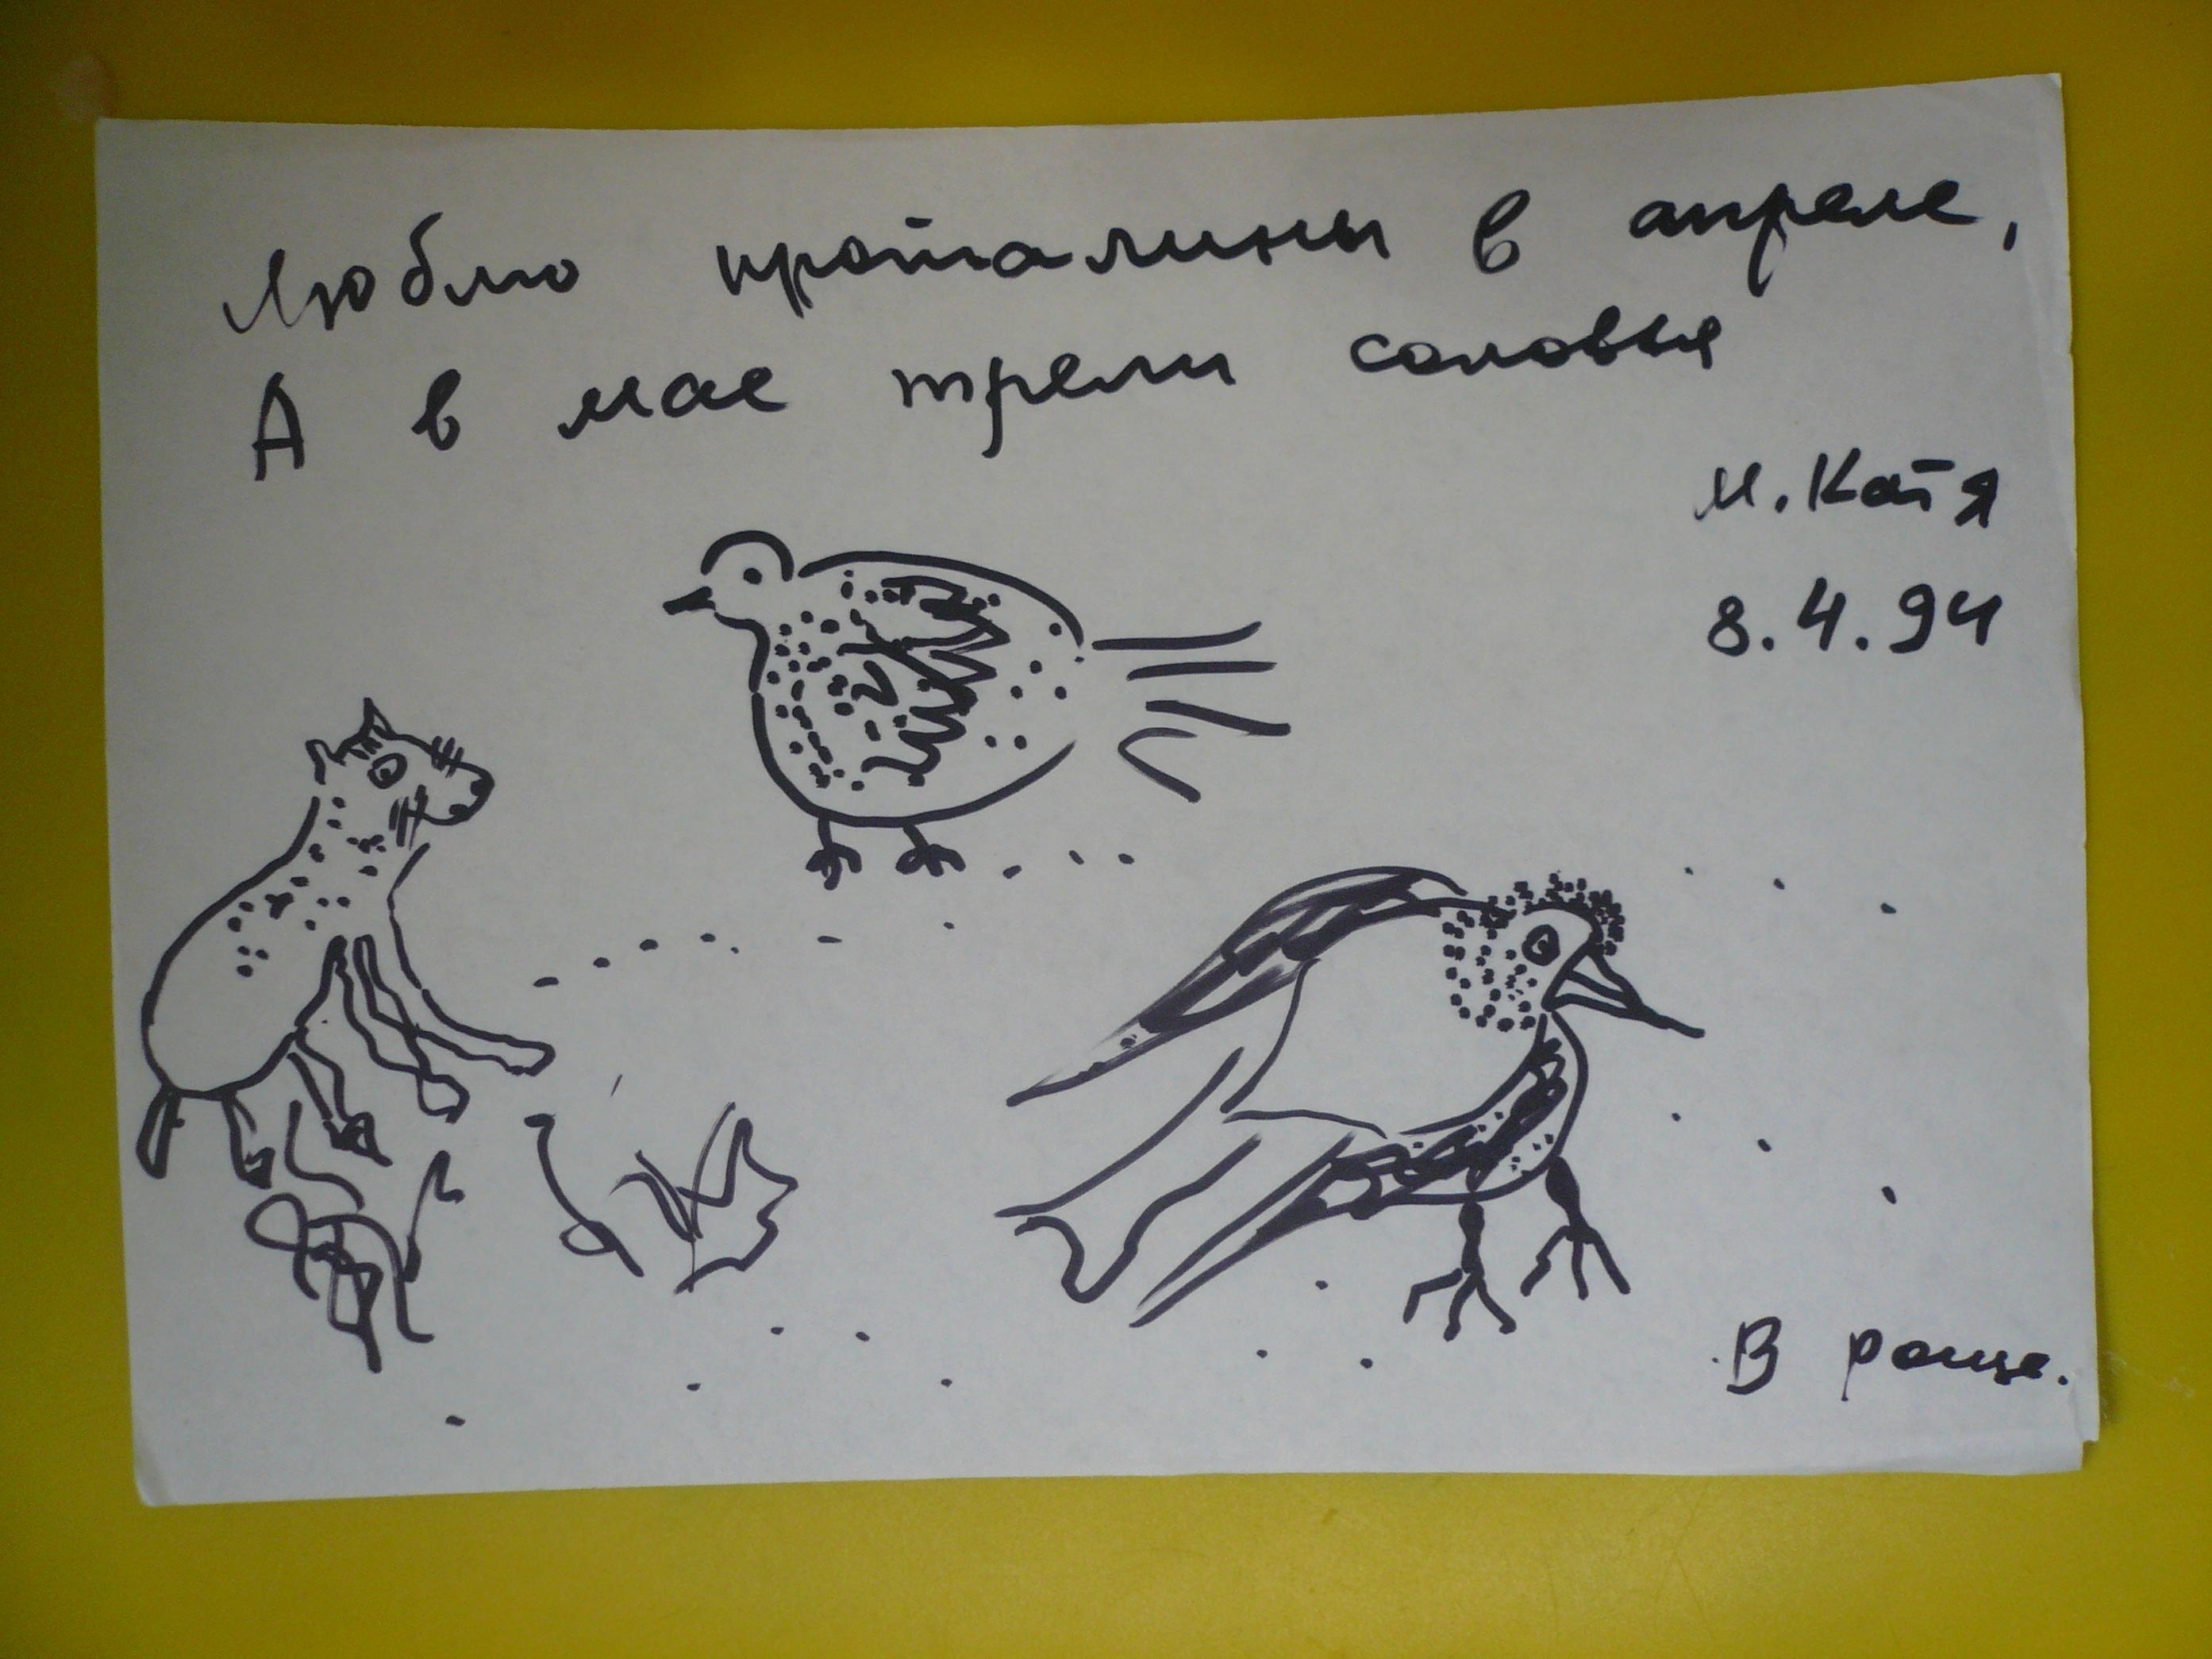 Люблю проталины в апреле,
А в мае трели соловья
М. Катя
8.4.94
В роще.